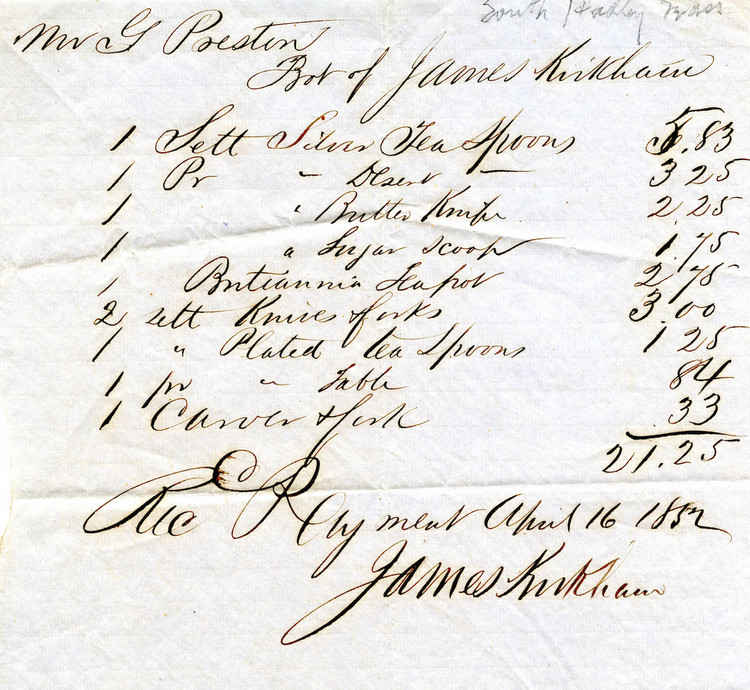 South Hadley Mass
Mr G Preston
Bot of James Kirkham
1 Sett Silver Tea Spoons 5.83
1 Pr " Desert — 3 25
1 " Butter Knife 2.25
1 " Sugar Scoop 1.75
1 Britiannia Teapot 2 75
2 sett Knives & forks 3.00
1 " Plated tea Spoons 1 25
1 pr " Table 84
1 Carver & fork .33
21.25
Rec d Payment April 16 1852
James Kirkham